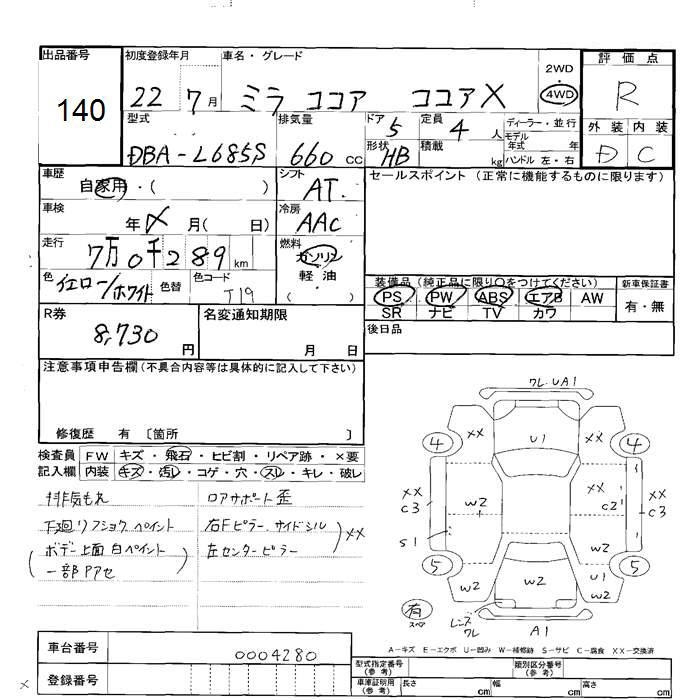 出品番号
140
初度登録年月
22 7月
車名・グレード
ミラ ココア ココアX
2WD
・
4WD
評価点
R
外装 内装
D C
型式
DBA-L685S
排気量
660 CC
ドア 5
形状 HB
定員 4 人
積載 kg
ディーラー・並行
モデル年式 年
ハンドル 左・右
車歴
自家用・( )
シフト
AT
セールスポイント (正常に機能するものに限ります)
車検
年 月( 日)
冷房
AAC
走行
7万0千289 km
燃料
ガソリン
軽油
( )
色 イエロー/ホワイト
色替
色コード
T19
装備品 (純正品に限り○をつけてください)
PS PW ABS エアB AW
SR ナビ TV カワ
新車保証書
有・無
R券
8,730 円
名変通知期限
月 日
後日品
注意事項申告欄 (不具合内容等は具体的に記入して下さい)
修復歴 有 〔箇所 〕
検査員記入欄
FW キズ・飛石・ヒビ割・リペア跡・×要
内装 キズ・汚レ・コゲ・穴・スレ・キレ・破レ
排気もれ
下廻リフショク ペイント
ボデー上面 白ペイント
一部Pアセ
ロアサポート歪
右Fピラー、サイドシル
左センターピラー
XX
ワレ.UA1
4 XX U1 XX 4
XX C3 W2 W2 XX C2 XX C3
S1 W2
5 W2 W2 U1 W2 5
有 スペア
レンズワレ
A1
A-キズ E-エクボ U-凹み W-補修跡 S-サビ C-腐食 XX-交換済
車台番号
0004280
登録番号
型式指定番号(参考)
類別区分番号(参考)
車庫証明用(参考)
長さ cm 幅 cm 高さ cm
×